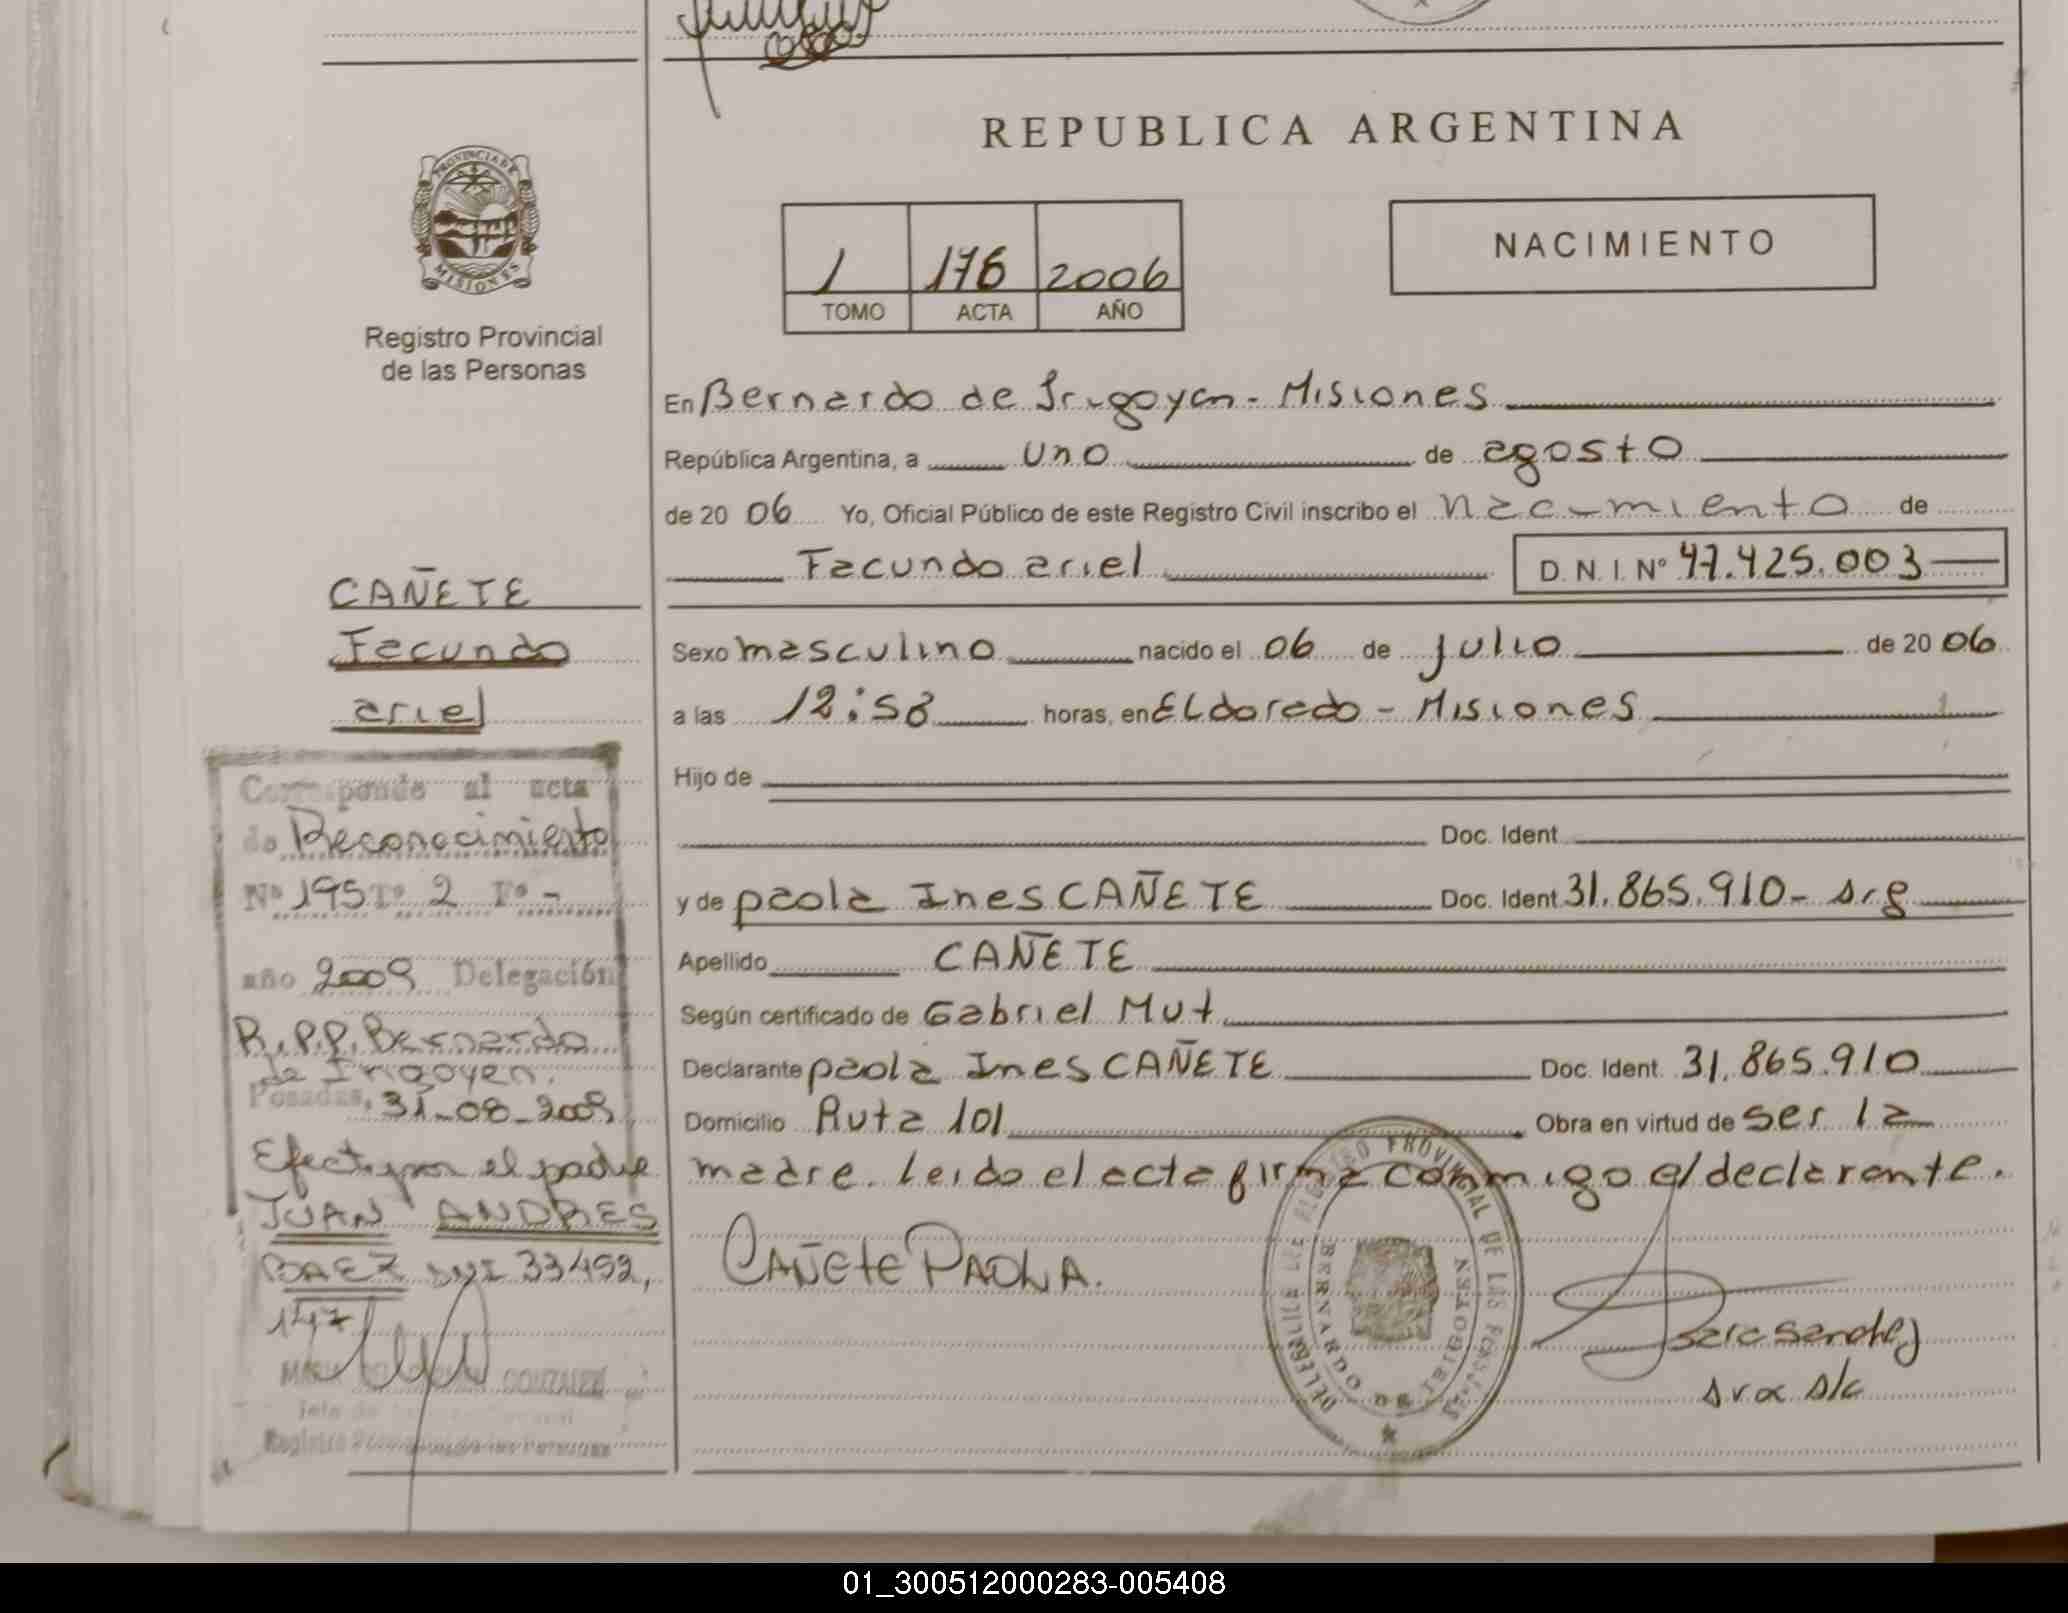 REPUBLICA ARGENTINA
PROVINCIA DE
MISIONES
Registro Provincial
de las Personas
1 176 2006
TOMO ACTA AÑO
NACIMIENTO
En Bernardo de Irigoyen - Misiones
República Argentina, a uno de agosto
de 20 06 Yo, Oficial Público de este Registro Civil inscribo el nacimiento de
Facundo ariel D. N. I. Nº 47.425.003
Sexo masculino nacido el 06 de julio de 20 06
a las 12:58 horas, en ELdorado - Misiones
Hijo de
Doc. Ident.
y de paola Ines CAÑETE Doc. Ident. 31.865.910 - arg
Apellido CAÑETE
Según certificado de Gabriel Mut
Declarante paola Ines CAÑETE Doc. Ident. 31.865.910
Domicilio Ruta 101 Obra en virtud de ser la
madre. leido el acta firma conmigo el declarante.
CAÑEtE PAOLA.
DELEGACION
REGISTRO PROVINCIAL DE LAS PERSONAS
BERNARDO DE IRIGOYEN
sara sanchez
CAÑETE
Facundo
ariel
Corresponde al acta
de Reconocimiento
Nº 195 Tº 2 Fº -
año 2009 Delegación
R.P.P. Bernardo
de Irigoyen.
Posadas, 31-08-2009
Efect. por el padre
JUAN ANDRES
BAEZ DNI 33492,
147
GONZALEZ
Registro Provincial de las Personas
01_300512000283-005408